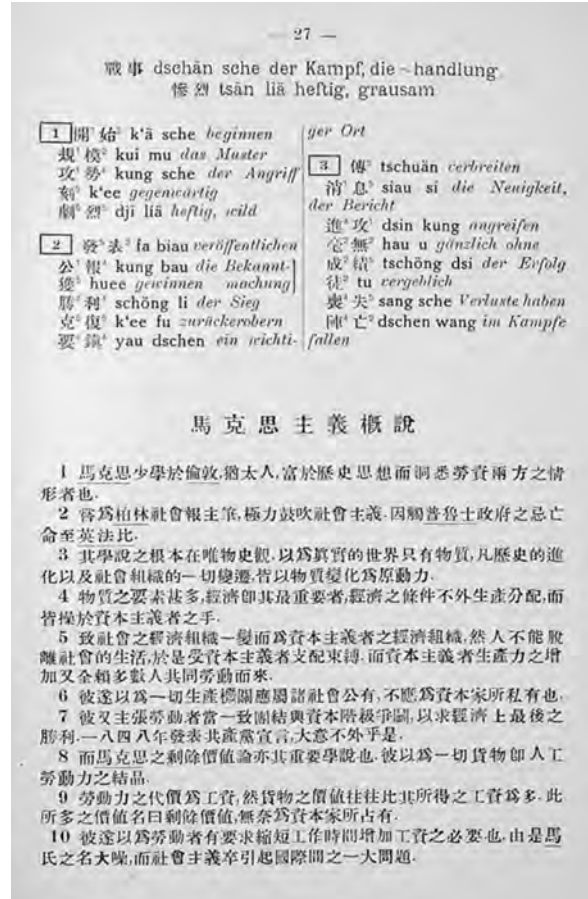 — 27 —
戰事 dschän sche der Kampf, die ~ handlung
慘烈 tsän liä heftig, grausam
1 開¹ 始³ k'ä sche beginnen
規¹ 模² kui mu das Muster
攻¹ 勢⁴ kung sche der Angriff
刻⁵ k'ee gegenwärtig
劇⁵ 烈⁵ dji liä heftig, wild
2 發⁵ 表³ fa biau veröffentlichen
公¹ 報⁴ kung bau die Bekannt-
獲⁵ huee gewinnen machung]
勝⁴ 利⁴ schöng li der Sieg
克⁵ 復⁵ k'ee fu zurückerobern
要⁴ 鎮⁴ yau dschen ein wichti-
ger Ort
3 傳² tschuän verbreiten
消¹ 息⁵ siau si die Neuigkeit,
der Bericht
進⁴ 攻¹ dsin kung angreifen
毫² 無² hau u gänzlich ohne
成² 績⁵ tschöng dsi der Erfolg
徒² tu vergeblich
喪⁴ 失⁵ sang sche Verluste haben
陣⁴ 亡² dschen wang im Kampfe
fallen
馬克思主義概說
1 馬克思少學於倫敦,猶太人,富於歷史思想而洞悉勞資兩方之情
形者也.
2 嘗爲柏林社會報主筆,極力鼓吹社會主義.因觸普魯士政府之忌亡
命至英法比.
3 其學說之根本在唯物史觀.以爲眞實的世界只有物質,凡歷史的進
化以及社會組織的一切變遷,皆以物質變化爲原動力.
4 物質之要素甚多,經濟卽其最重要者,經濟之條件不外生產分配,而
皆操於資本主義者之手.
5 致社會之經濟組織一變而爲資本主義者之經濟組織,然人不能脫
離社會的生活,於是受資本主義者支配束縛.而資本主義者生產力之增
加又全賴多數人共同勞動而來.
6 彼遂以爲一切生產機關應屬諸社會公有,不應爲資本家所私有也.
7 彼又主張勞動者當一致團結與資本階級爭鬪,以求經濟上最後之
勝利.一八四八年發表共產黨宣言,大意不外乎是.
8 而馬克思之剩餘價値論亦其重要學說也.彼以爲一切貨物卽人工
勞動力之結晶.
9 勞動力之代價爲工資,然貨物之價値往往比其所得之工資爲多.此
所多之價値名曰剩餘價値,無奈爲資本家所占有.
10 彼遂以爲勞動者有要求縮短工作時間增加工資之必要也.由是馬
氏之名大噪,而社會主義卒引起國際間之一大問題.